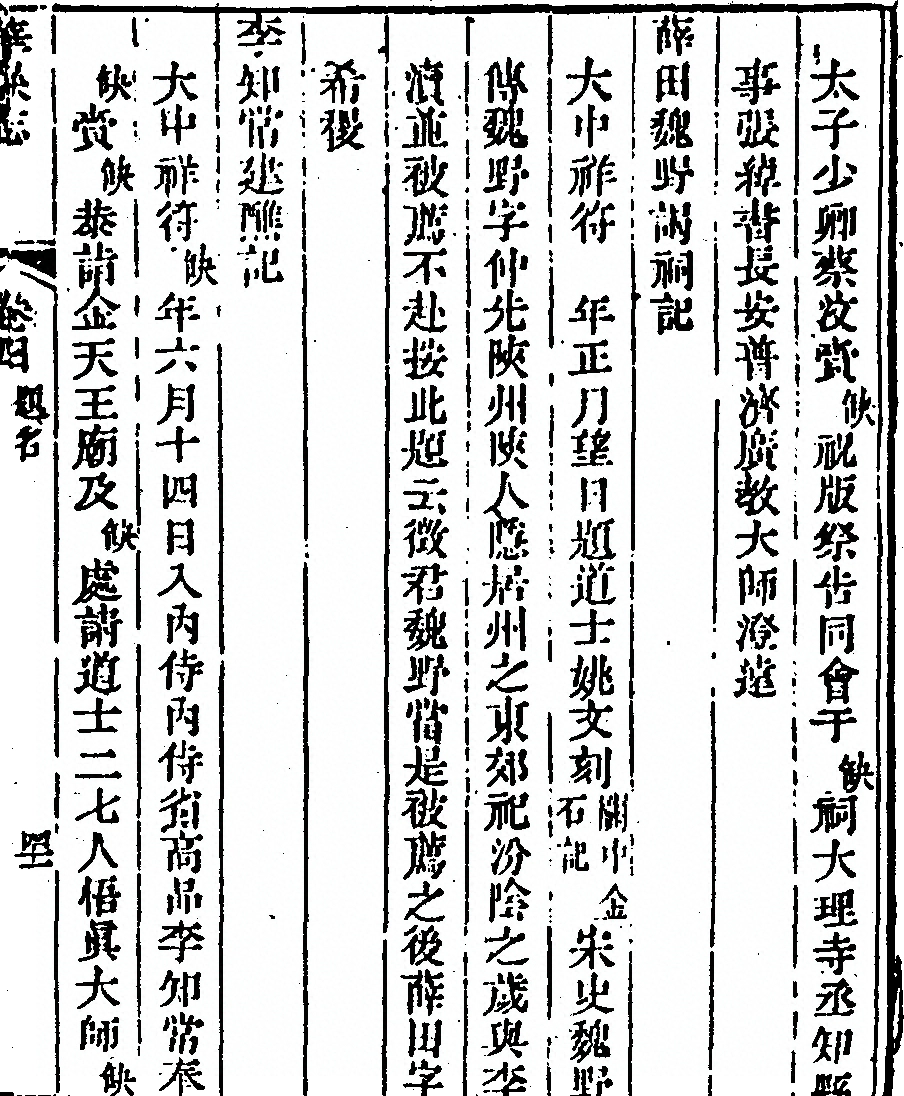 太子少卿蔡汶賫缺祝版祭告同會于缺祠大理寺丞知縣
事張綽書長安普濟廣教大師澄遠
薛田魏野謁祠記
大中祥符　年正月望日題道士姚文刻關中金石記宋史魏野
傳魏野字仲先陝州陝人應居州之東郊祀汾陰之歲與李
瀆並被薦不赴按此題云徵君魏野當是被薦之後薛田字
希稷
李知常建醮記
大中祥符缺年六月十四日入內侍內侍省高品李知常奉
缺賫缺恭詣金天王廟及缺處請道士二七人悟眞大師缺
華嶽志
卷四
題名